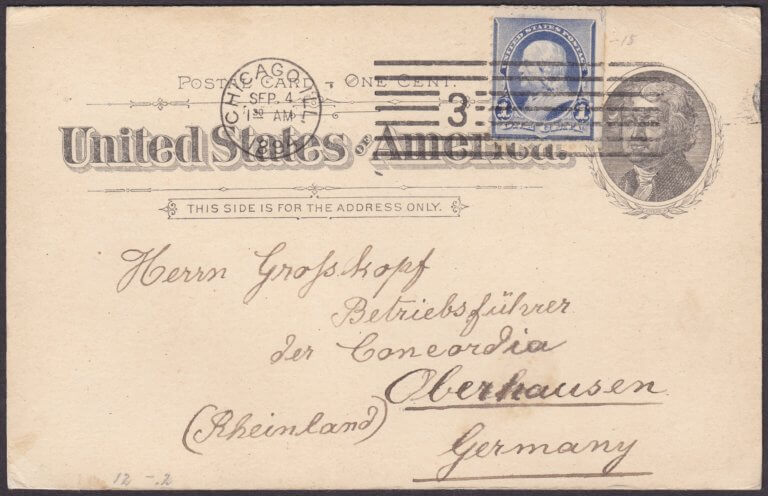 -15
UNITED STATES POSTAGE
1 1
POSTAL CARD – ONE CENT.
CHICAGO, ILL.
SEP. 4
1 30 AM
3
United States of America.
THIS SIDE IS FOR THE ADDRESS ONLY.
Herrn Grosskopf
Betriebsführer
der Concordia
Oberhausen
(Rheinland)
Germany
12 - .2